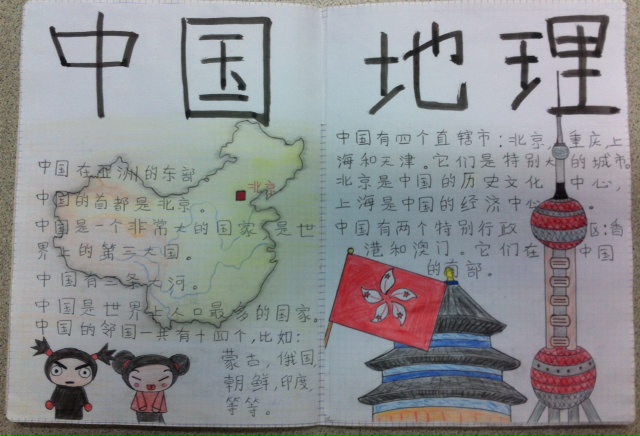 中国地理
中国在亚洲的东部
北京
中国的首都是北京。
中国是一个非常大的国家 是世
界上的第三大国。
中国有三条大河。
中国是世界上人口最多的国家。
中国的邻国一共有十四个,比如:
蒙古,俄国,
朝鲜,印度,
等等。
中国有四个直辖市:北京,重庆上
海和天津。它们是特别大的城市。
北京是中国的历史文化中心,
上海是中国的经济中心
中国有两个特别行政区:香
港和澳门。它们在中国
的南部。